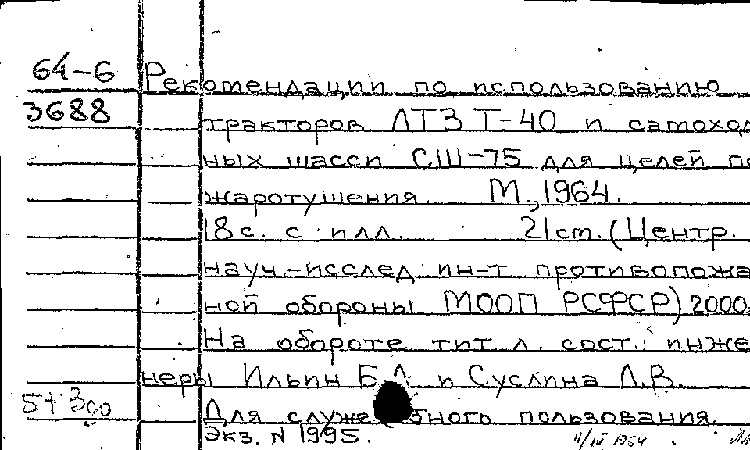 64-6 Рекомендации по использованию
3688 тракторов ЛТЗ Т-40 и самоход
ных шасси СШ-75 для целей по
жаротушения. М., 1964.
18 с. с илл. 21 см. (Центр.
науч.-исслед ин-т противопожа
ной обороны МООП РСФСР) 2000
На обороте тит л. сост. инже
неры Ильин Б.А. и Суслина Л.В.
Для служебного пользования.
Экз. N 1995.